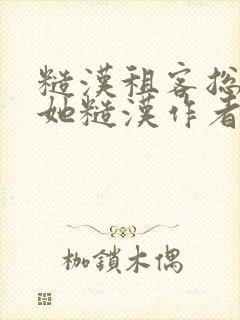 糙漢租客摁
她糙漢作者
枷鎖木偶